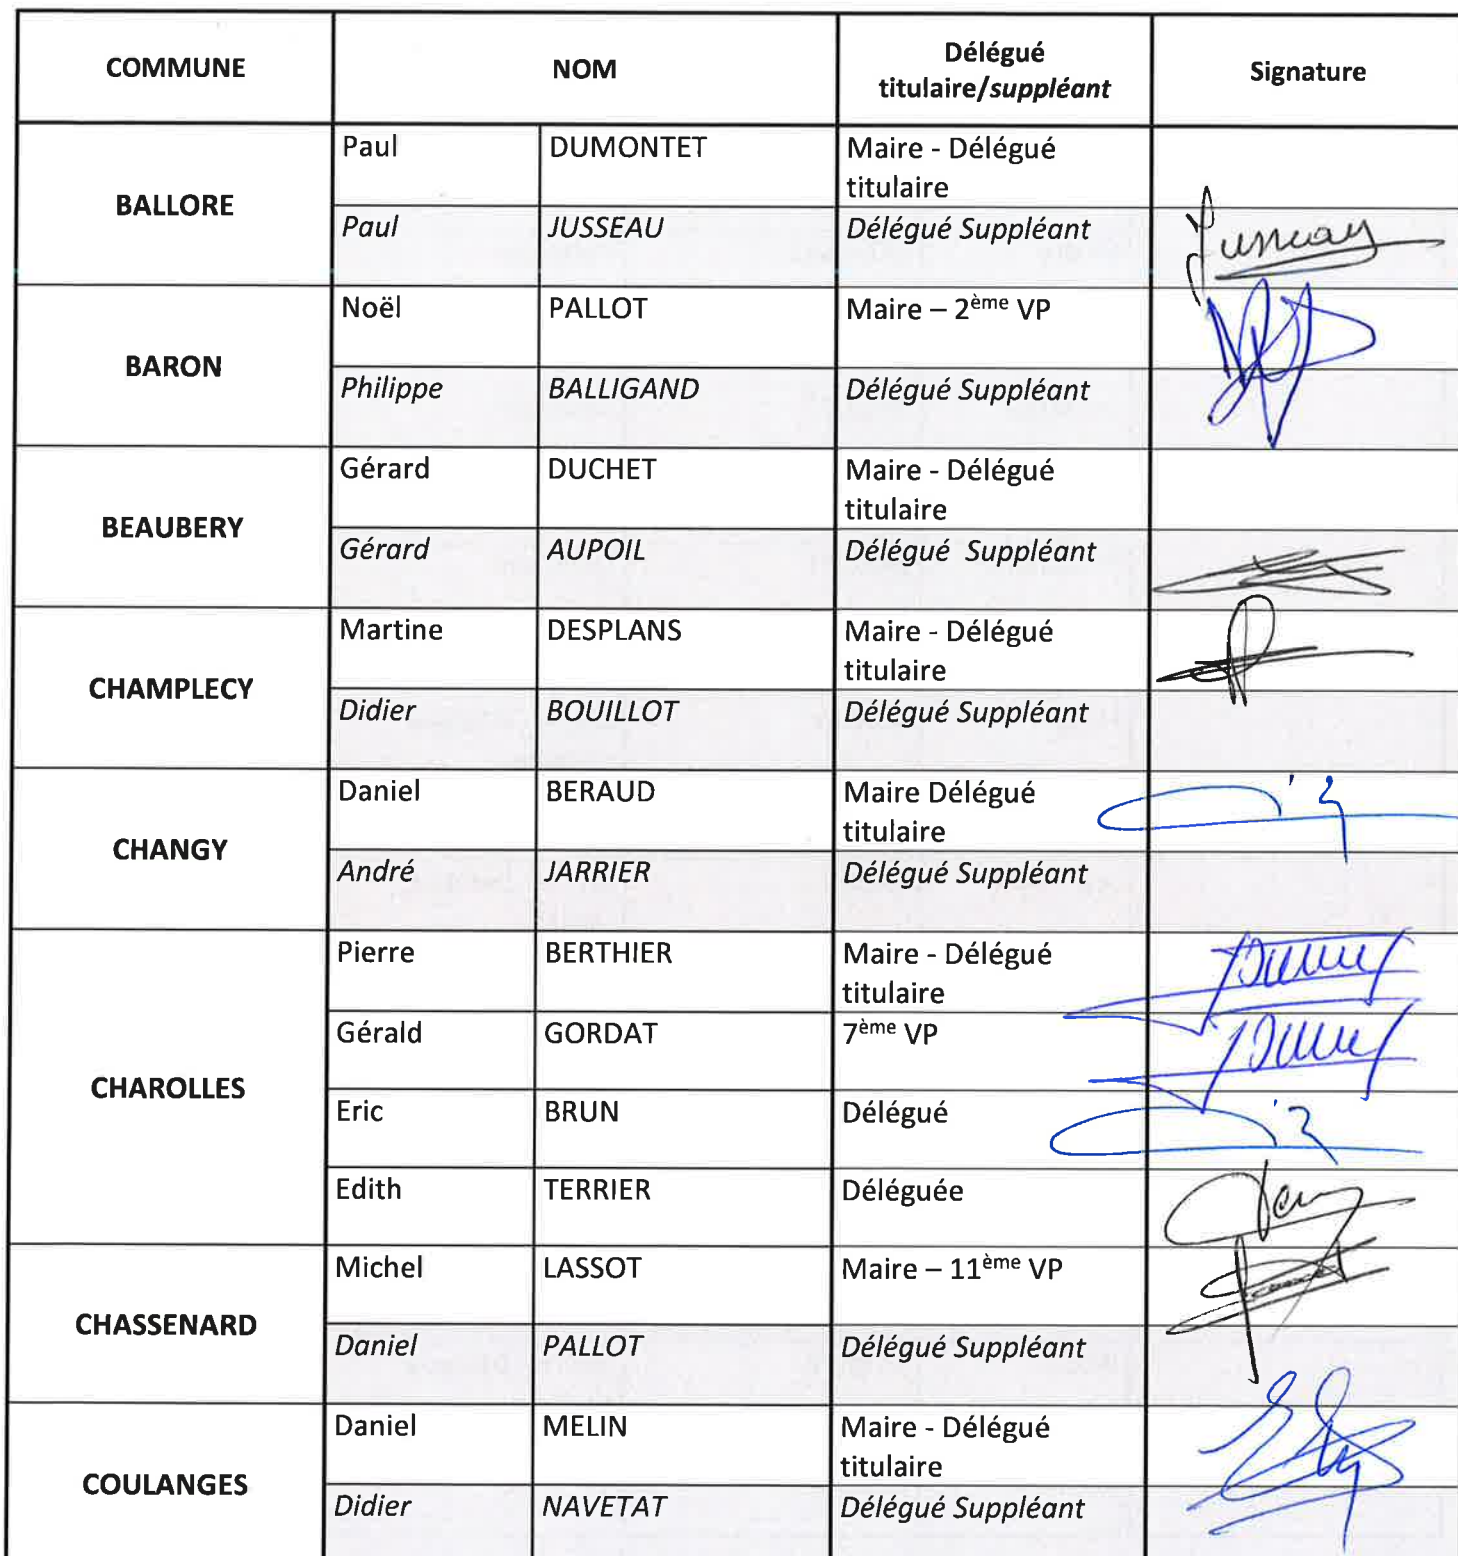 COMMUNE NOM Délégué titulaire/suppléant Signature
BALLORE
Paul DUMONTET Maire - Délégué titulaire
Paul JUSSEAU Délégué Suppléant Jusseau
BARON
Noël PALLOT Maire – 2ème VP
Philippe BALLIGAND Délégué Suppléant
BEAUBERY
Gérard DUCHET Maire - Délégué titulaire
Gérard AUPOIL Délégué Suppléant
CHAMPLECY
Martine DESPLANS Maire - Délégué titulaire
Didier BOUILLOT Délégué Suppléant
CHANGY
Daniel BERAUD Maire Délégué titulaire
André JARRIER Délégué Suppléant
CHAROLLES
Pierre BERTHIER Maire - Délégué titulaire
Gérald GORDAT 7ème VP
Eric BRUN Délégué
Edith TERRIER Déléguée
CHASSENARD
Michel LASSOT Maire – 11ème VP
Daniel PALLOT Délégué Suppléant
COULANGES
Daniel MELIN Maire - Délégué titulaire
Didier NAVETAT Délégué Suppléant